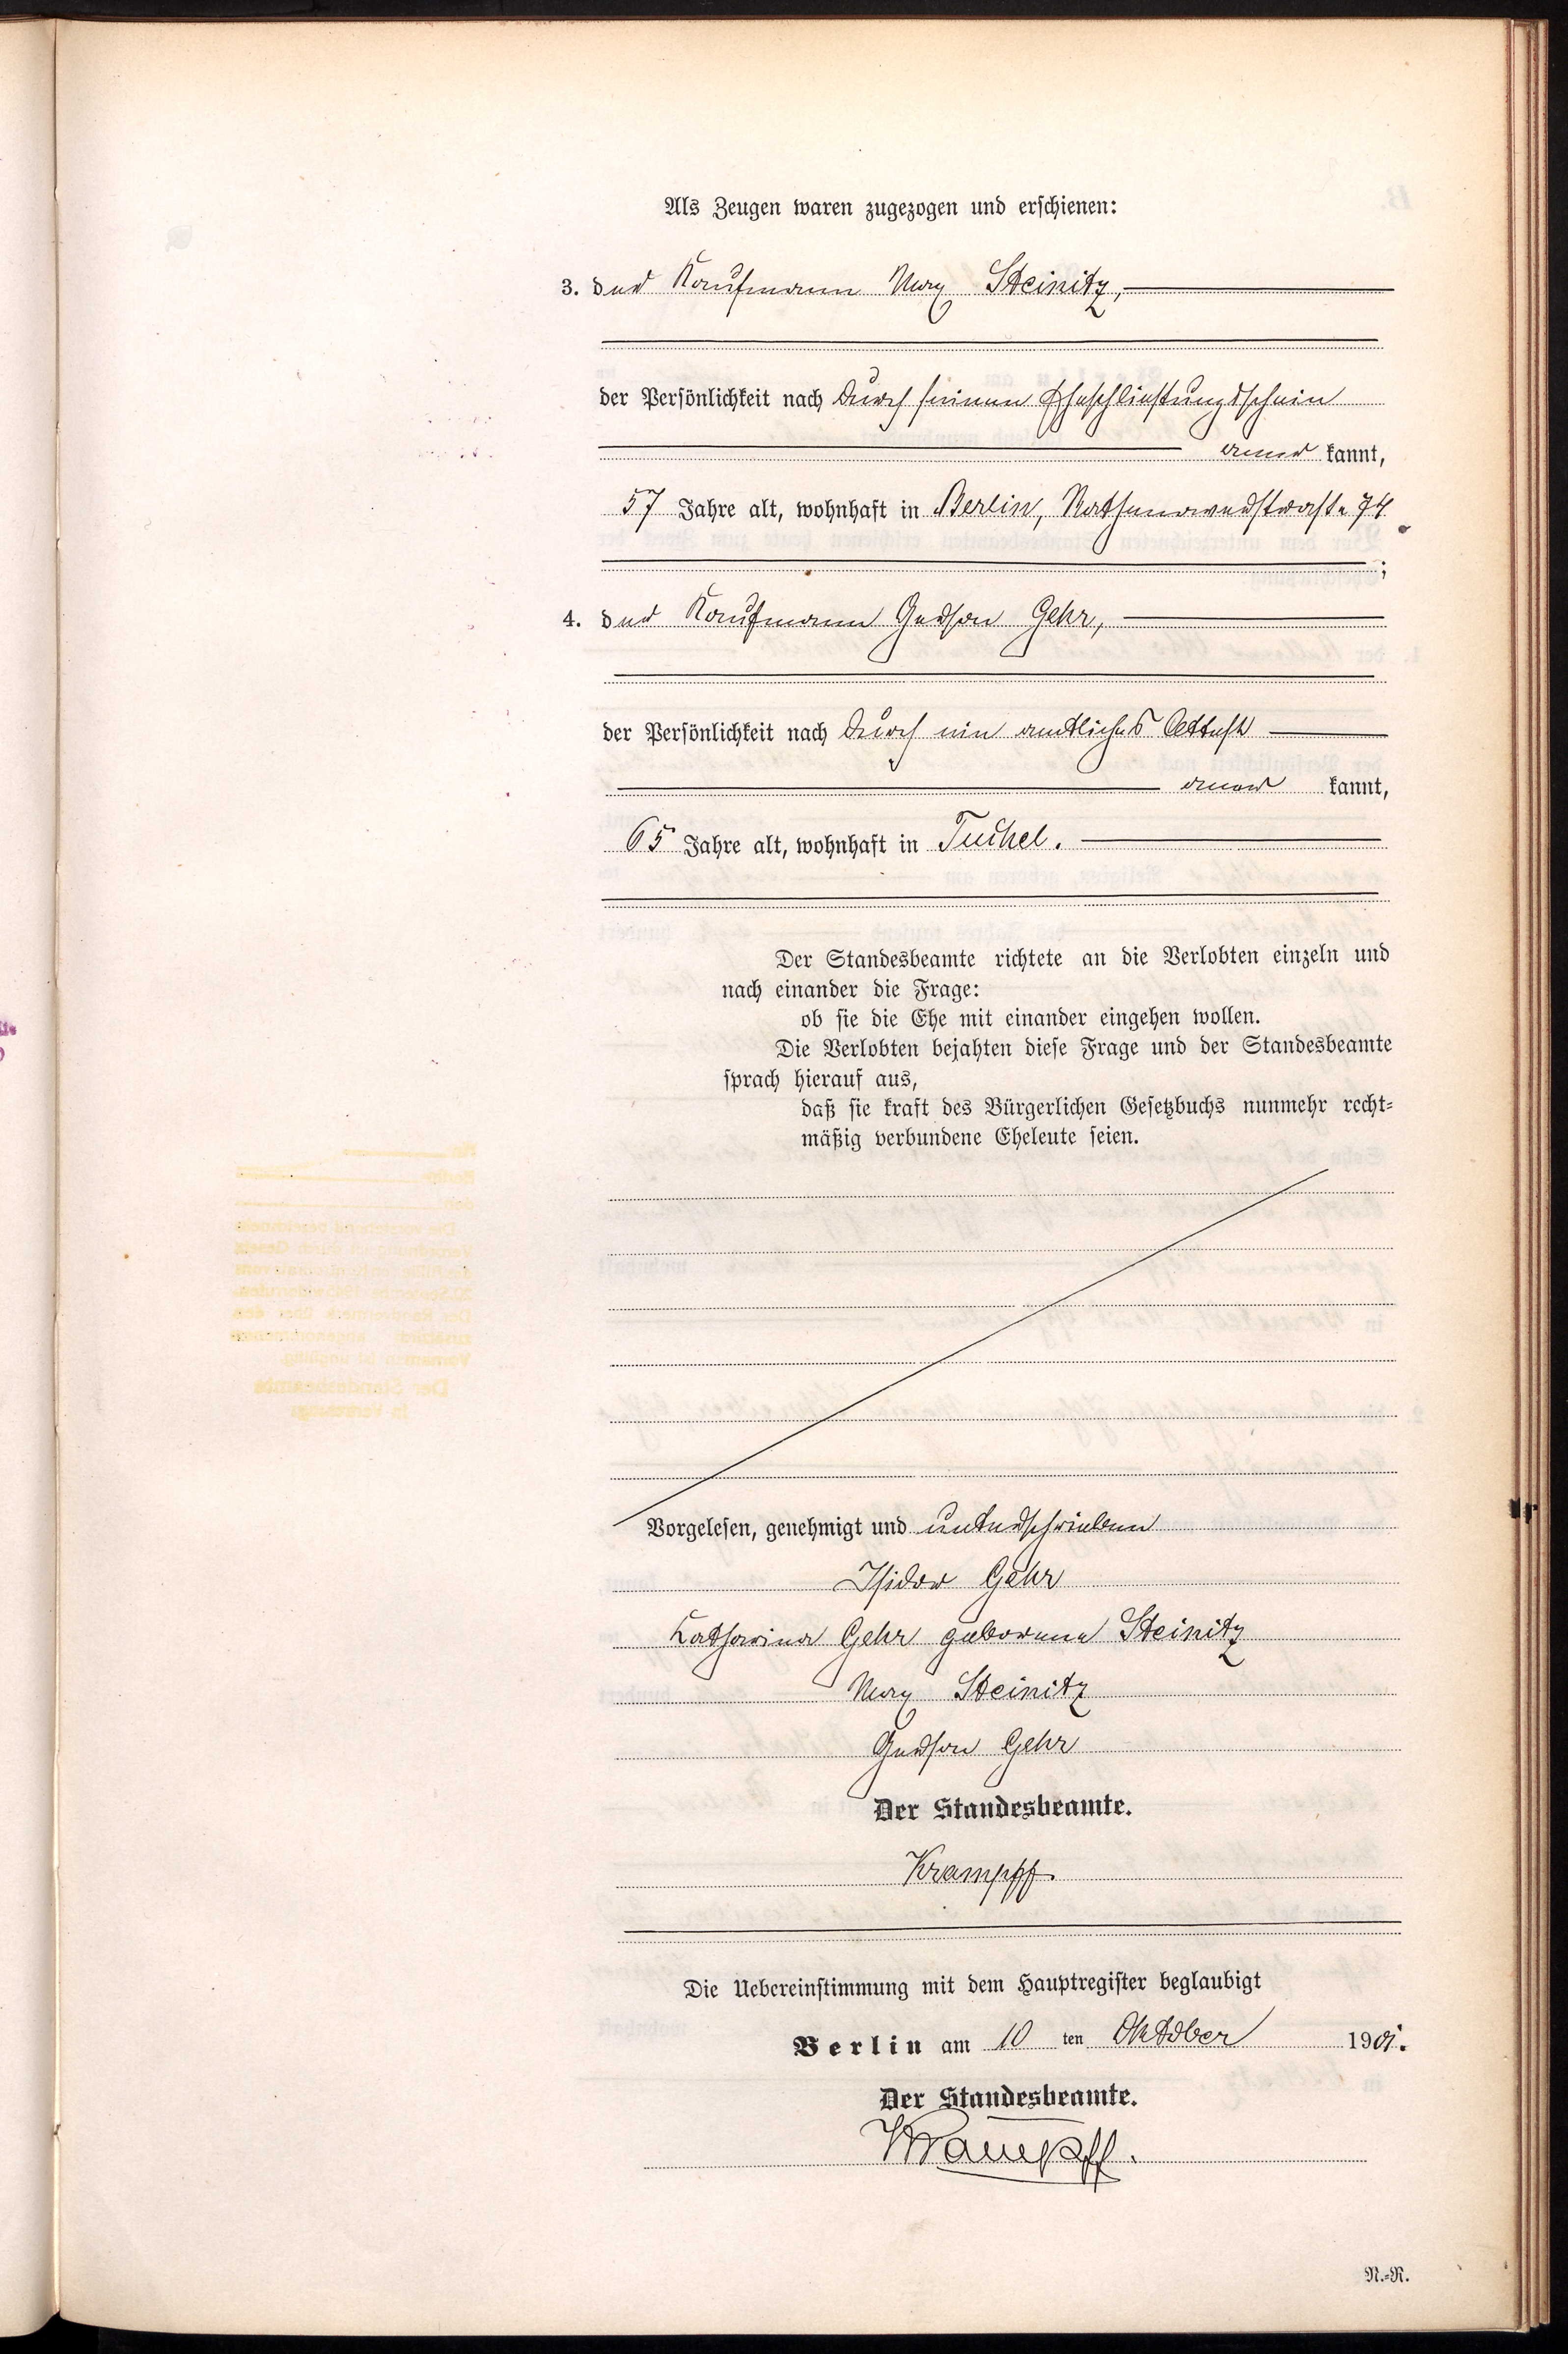 Als Zeugen waren zugezogen und erschienen:
3. der Kaufmann Max Steinitz,
der Persönlichkeit nach durch seinen Eheschließungsschein
aner kannt,
57 Jahre alt, wohnhaft in Berlin, Rathenowerstraße 74
;
4. der Kaufmann Gerson Gehr,
der Persönlichkeit nach durch ein amtliches Attest
aner kannt,
65 Jahre alt, wohnhaft in Tuchel.
Der Standesbeamte richtete an die Verlobten einzeln und
nach einander die Frage:
ob sie die Ehe mit einander eingehen wollen.
Die Verlobten bejahten diese Frage und der Standesbeamte
sprach hierauf aus,
daß sie kraft des Bürgerlichen Gesetzbuchs nunmehr recht=
mäßig verbundene Eheleute seien.
Vorgelesen, genehmigt und unterschrieben
Isidor Gehr
Katharina Gehr geborene Steinitz
Max Steinitz
Gerson Gehr
Der Standesbeamte.
Krampff
Die Uebereinstimmung mit dem Hauptregister beglaubigt
Berlin am 10 ten Oktober 1901.
Der Standesbeamte.
Krampff.
N.=R.